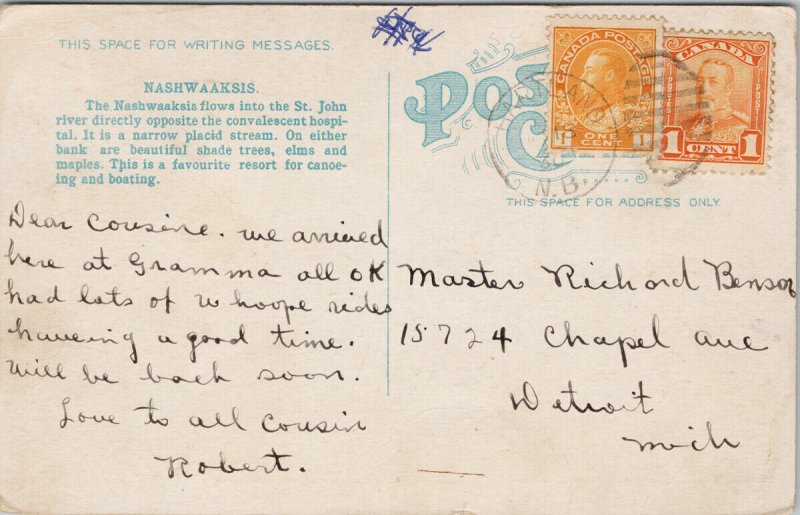 THIS SPACE FOR WRITING MESSAGES.
NASHWAAKSIS.
The Nashwaaksis flows into the St. John
river directly opposite the convalescent hospi-
tal. It is a narrow placid stream. On either
bank are beautiful shade trees, elms and
maples. This is a favourite resort for canoe-
ing and boating.
Dear Cousine. we arrived
here at Gramma all OK
had lots of whoope rides
haveing a good time.
will be back soon.
Love to all cousin
Robert.
CANADA POSTAGE
1 ONE CENT 1
CANADA
POSTES POST
1 CENT 1
N.B.
THIS SPACE FOR ADDRESS ONLY.
Master Richard Benson
15724 Chapel ave
Detroit
Mich